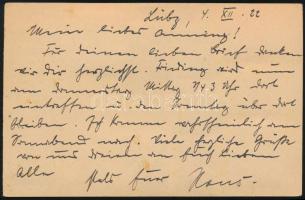 Lübz, 4. XII. 22
Mein lieber
Für deinen lieben Brief danken
wir dir herzlichst. wird nun
am Donnerstag Mittag 1/4 3 Uhr dort
eintreffen über dort
bleiben. Ich komme wahrscheinlich am
Sonnabend nach. Viele herzliche Grüße
von uns dreien an Euch lieben
Alle
stets Euer Hans.